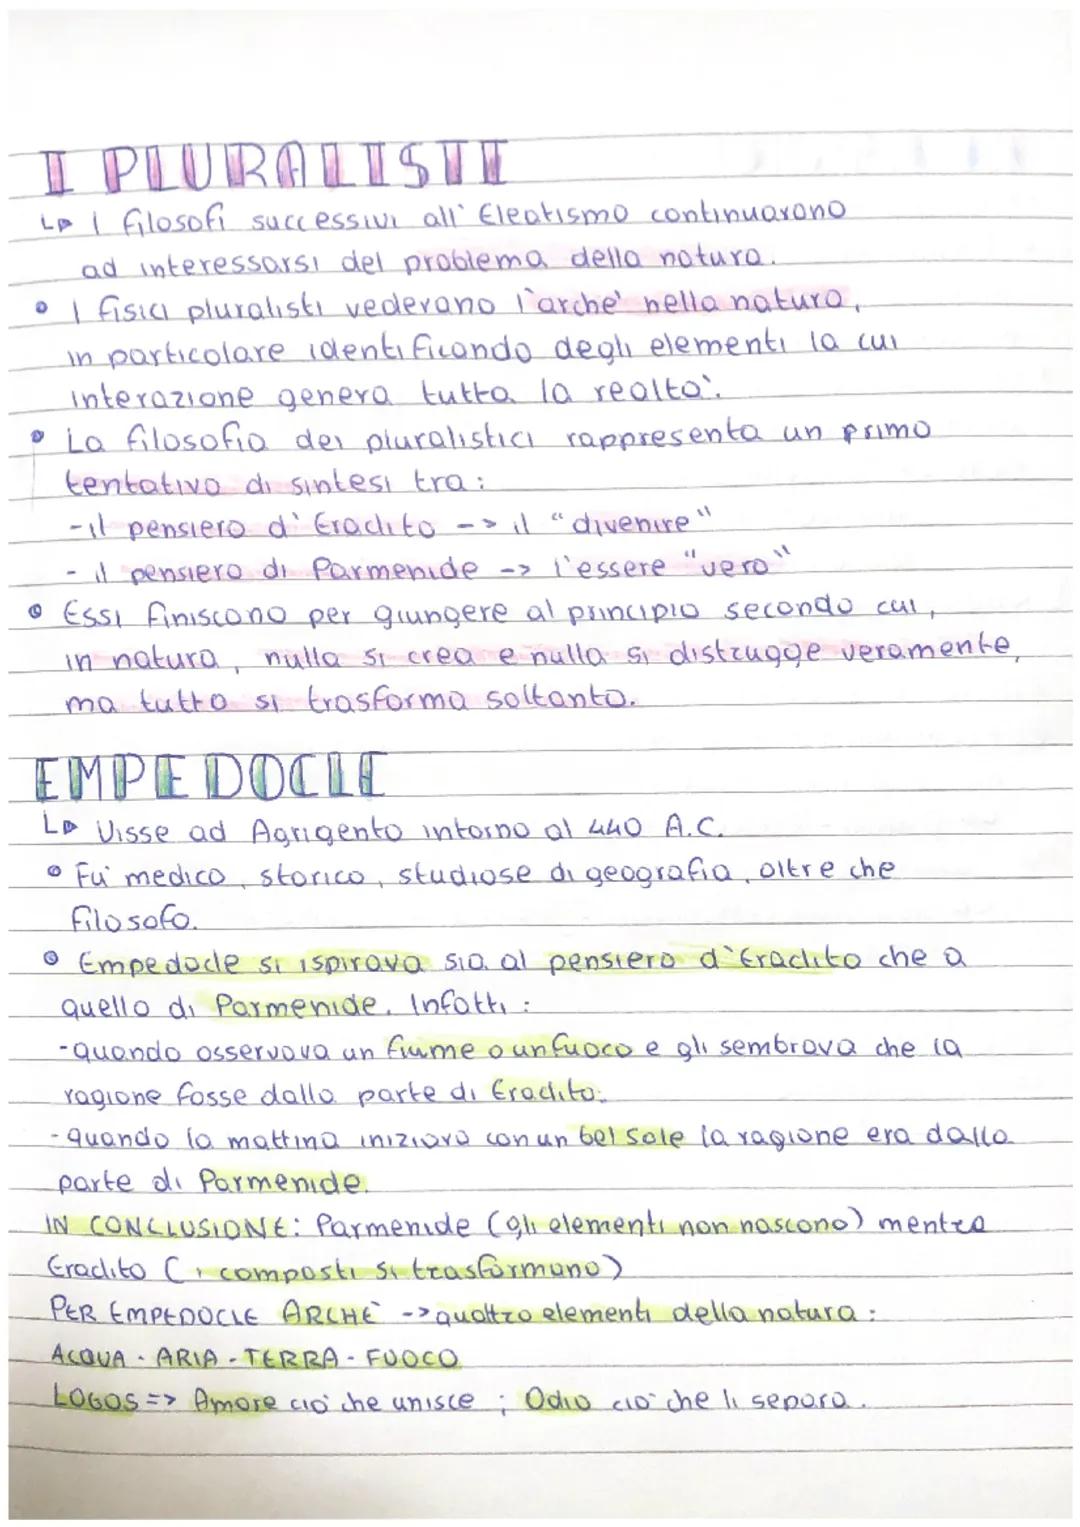 I PLURALISTI
I filosofi successivi all' Eleatismo continuarono
ad interessarsi del problema della natura.
I fisici pluralisti vedevano l'arche' nella natura,
in particolare identificando degli elementi la cui
interazione genera tutta la realta'.
La filosofia dei pluralistici rappresenta un primo
tentativo di sintesi tra:
-il pensiero d' Eraclito -> il "divenire"
- il pensiero di Parmenide -> l'essere "vero"
Essi finiscono per giungere al principio secondo cui,
in natura, nulla si crea e nulla si distrugge veramente,
ma tutto si trasforma soltanto.
EMPEDOCLE
Visse ad Agrigento intorno al 440 A.C.
Fu' medico, storico, studiose di geografia, oltre che
filosofo.
Empedocle si ispirava sia al pensiero d'Eraclito che a
quello di Parmenide. Infatti:
-quando osservava un fiume o un fuoco e gli sembrava che la
ragione fosse dalla parte di Eraclito;
-quando la mattina iniziava con un bel sole la ragione era dalla
parte di Parmenide.
IN CONCLUSIONE: Parmenide (gli elementi non nascono) mentre
Eraclito (i composti si trasformano)
PER EMPEDOCLE ARCHE' -> quattro elementi della natura:
ACQUA - ARIA - TERRA - FUOCO
LOGOS => Amore cio' che unisce ; Odio cio' che li separa.